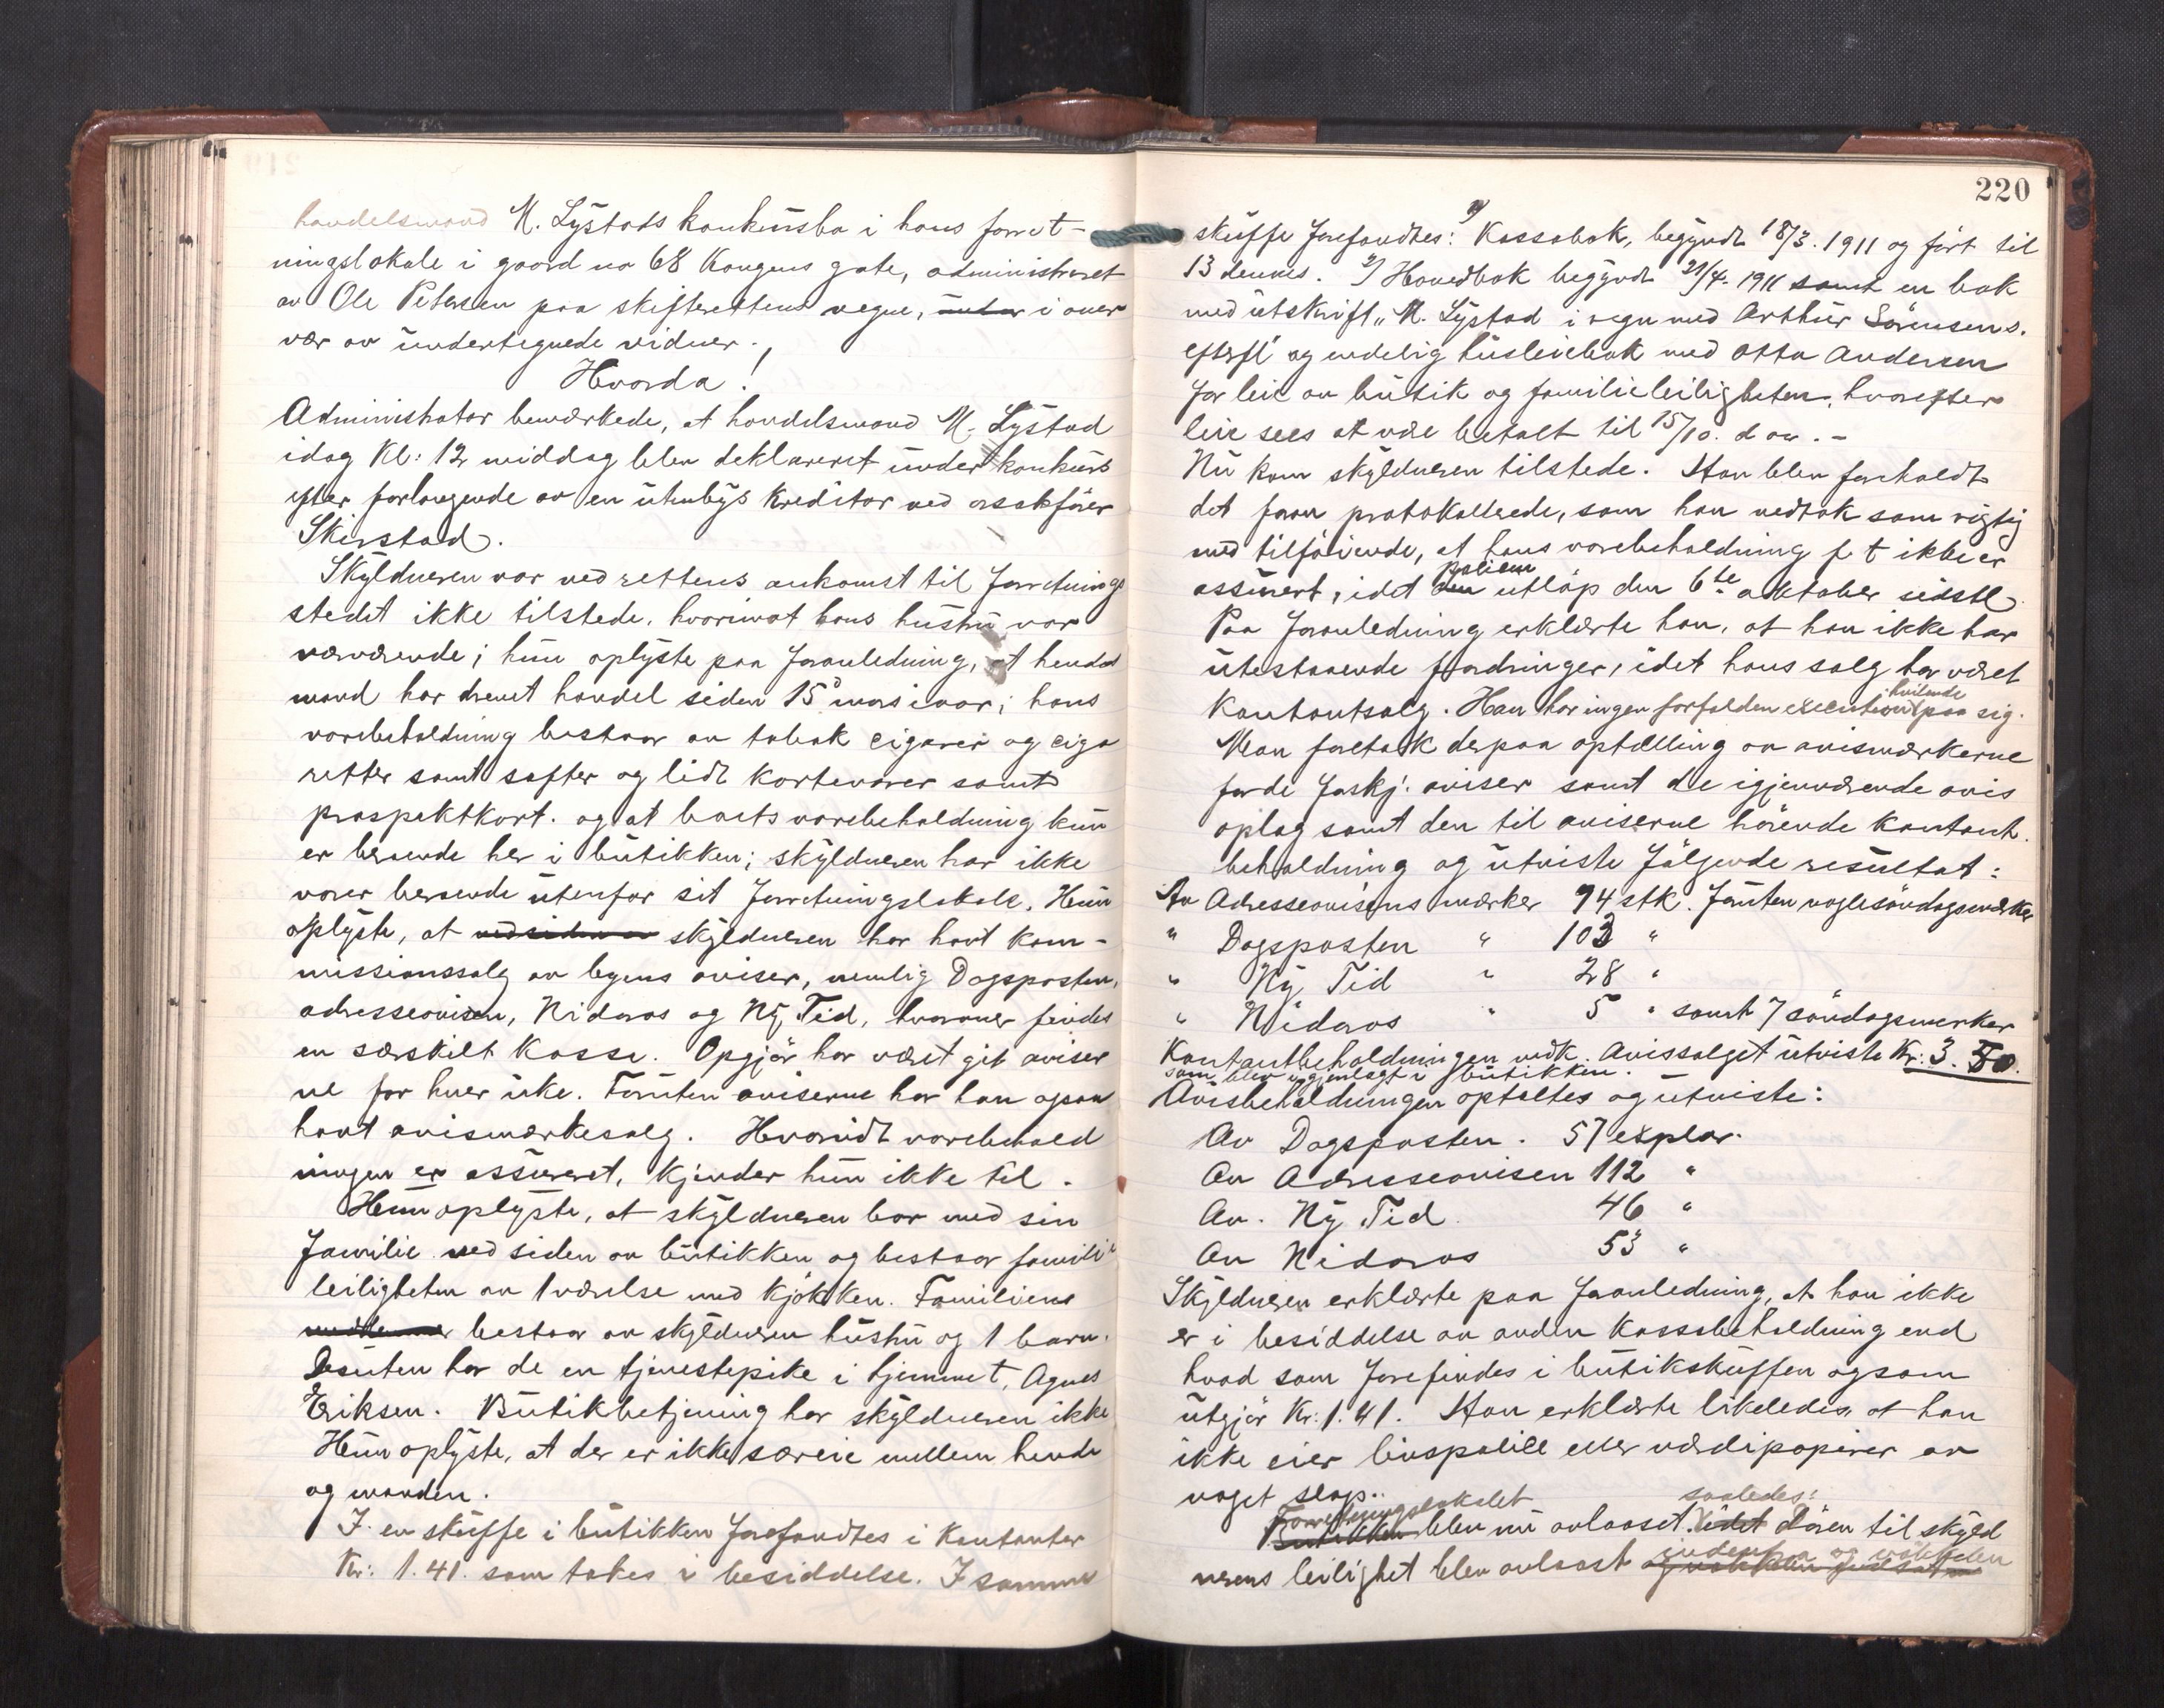 handelsmand M. Lystads konkursbo i hans forret-
ningslokale i gaard no 68 Kongens gate, administreret
av Ole Petersen paa skifterettens vegne, i over
vær av undertegnede vidner.
Hvorda!
Administrator bemærkede, at handelsmand M. Lystad
idag Kl: 12 middag blev deklareret under konkurs
efter forlangende av en utenbys kreditor ved orsakfører
Skirstad.
Skyldneren var ved rettens ankomst til forretnings
stedet ikke tilstede, hvorimot hans hustru var
nærværende; hun oplyste paa foranledning, at hendes
mand har drevet handel siden 15 mars iaar; hans
varebeholdning bestaar av tobak cigarer og ciga
retter samt safter og lidt kortevarer samt
prospektkort. og at boets varebeholdning kun
er beroende her i butikken; skyldneren har ikke
varer beroende utenfor sit forretningslokale. Hun
oplyste, at ved siden av skyldneren har havt kom-
missionssalg av byens aviser, nemlig Dagsposten,
adresseavisen, Nidaros og Ny Tid, hvorover findes
en særskilt kasse. Opgjør har været git aviser
ne for hver uke. Foruten aviserne har han ogsaa
havt avismærkesalg. Hvorvidt varebehold
ningen er assureret, kjender hun ikke til.
Hun oplyste, at skyldneren bor med sin
familie ved siden av butikken og bestaar familie
leiligheten av 1 værelse med kjøkken. Familiens
medlemmer bestaar av skyldneren hustru og 1 barn.
Desuten har de en tjenestepike i hjemmet, Agnes
Eriksen. Butikbetjening har skyldneren ikke
Hun oplyste, at der er ikke særeie mellem hende
og manden.
I en skuffe i butikken forefandtes i kontanter
Kr: 1.41. som takes i besiddelse. I samme
220
skuffe forefandtes: 1/ Kassabok, begyndt 18/3. 1911 og ført til
13 dennes. 2/ Hovedbok begyndt 21/4. 1911 samt en bok
med utskrift „M. Lystad i regn med Arthur Sørensens.
efterfl" og endelig husleiebok med Otto Andersen
for leie av butik og familieleiligheten, hvorefter
leie sees at være betalt til 15/10. d aa. -
Nu kom skyldneren tilstede. Han blev foreholdt
det foran protokollerede, som han vedtok som rigtig
med tilføiende, at hans varebeholdning p t ikke er
assurert, idet policen utløp den 6te oktober sidstl.
Paa foranledning erklærte han, at han ikke har
utestaaende fordringer, idet hans salg har været
Kontantsalg. Han har ingen forfalden execution hvilende paa sig.
Man foretok derpaa optælling av avismærkerne
for de forskj. aviser samt de igjenværende avis
oplag samt den til aviserne hørende kontant.
beholdning og utviste følgende resultat:
Av Adresseavisens mærker 94 stk. foruten nogle søndagsmærker
" Dagsposten " 103 "
" Ny Tid " 28 "
" Nidaros " 5 " samt 7 søndagsmerker
Kontantbeholdningen vedk. Avissalget utviste Kr: 3.50.
som blev igjenlagt i butikken.
Avisbeholdningen optaltes og utviste:
Av Dagsposten. 57 explar.
Av Adresseavisen 112 "
Av. Ny Tid 46 "
Av Nidaros 53 "
Skyldneren erklærte paa foranledning, at han ikke
er i besiddelse av anden kassabeholdning end
hvad som forefindes i butikskuffen og som
utgjør Kr: 1.41. Han erklærte likeledes at han
ikke eier livspolise eller værdipapirer av
noget slags..
Butikken Forretningslokalet blev nu avlaaset. idet saaledes: døren til skyld
nerens leilighet blev avlaast indenfra og nøkkelen